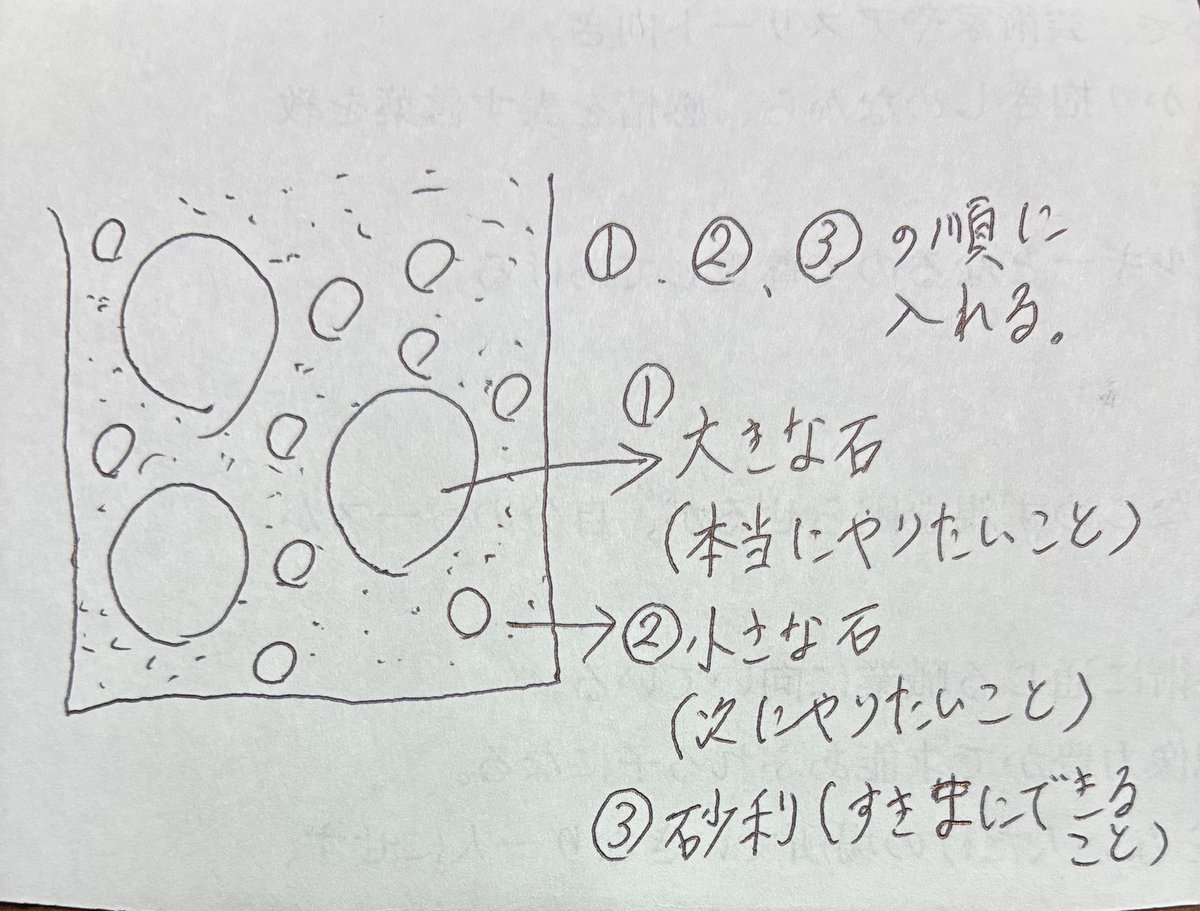 ①.②、③の順に
入れる。
①
大きな石
(本当にやりたいこと)
②小さな石
(次にやりたいこと)
③砂利(すきまにできる
こと)